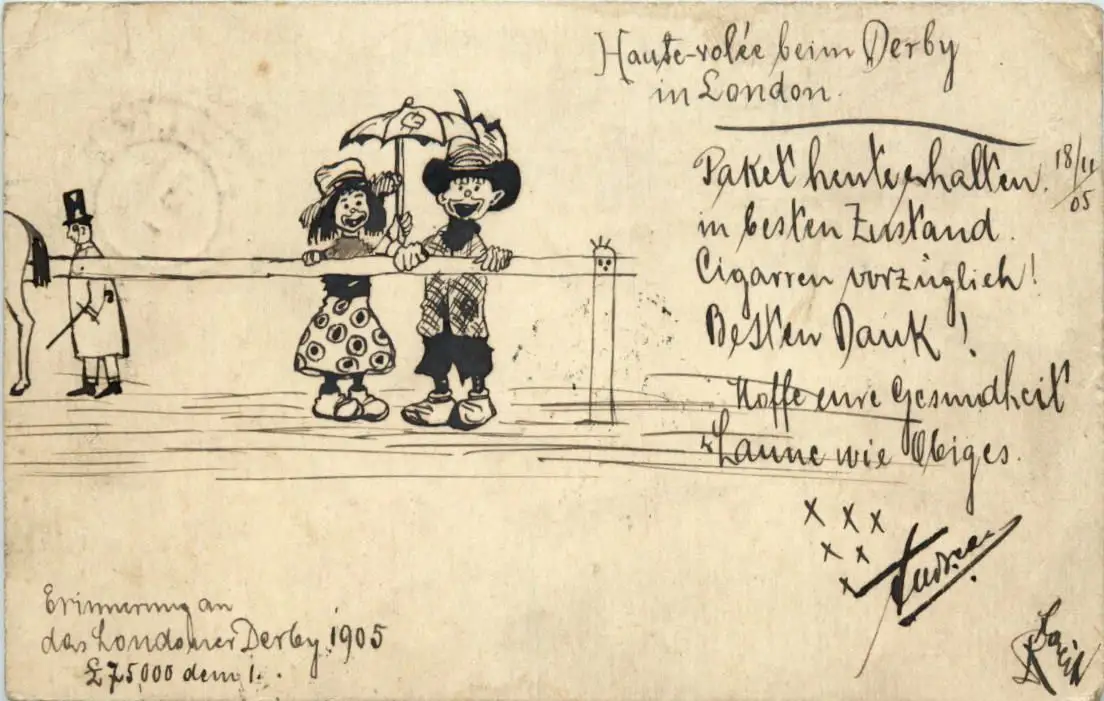 Haute-volée beim Derby
in London.
Paket heute erhalten.
18/11
05
in besten Zustand.
Cigarren vorzüglich!
Besten Dank!
Hoffe eure Gesundheit
Laune wie Obiges.
x x x
x x
x
Erinnerung an
das Londoner Derby 1905
£75000 dem 1.